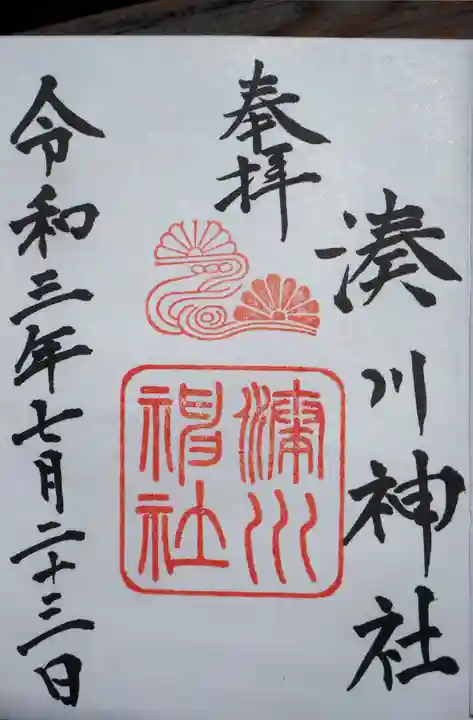 湊川神社
奉拝
湊川
神社
令和三年七月二十三日